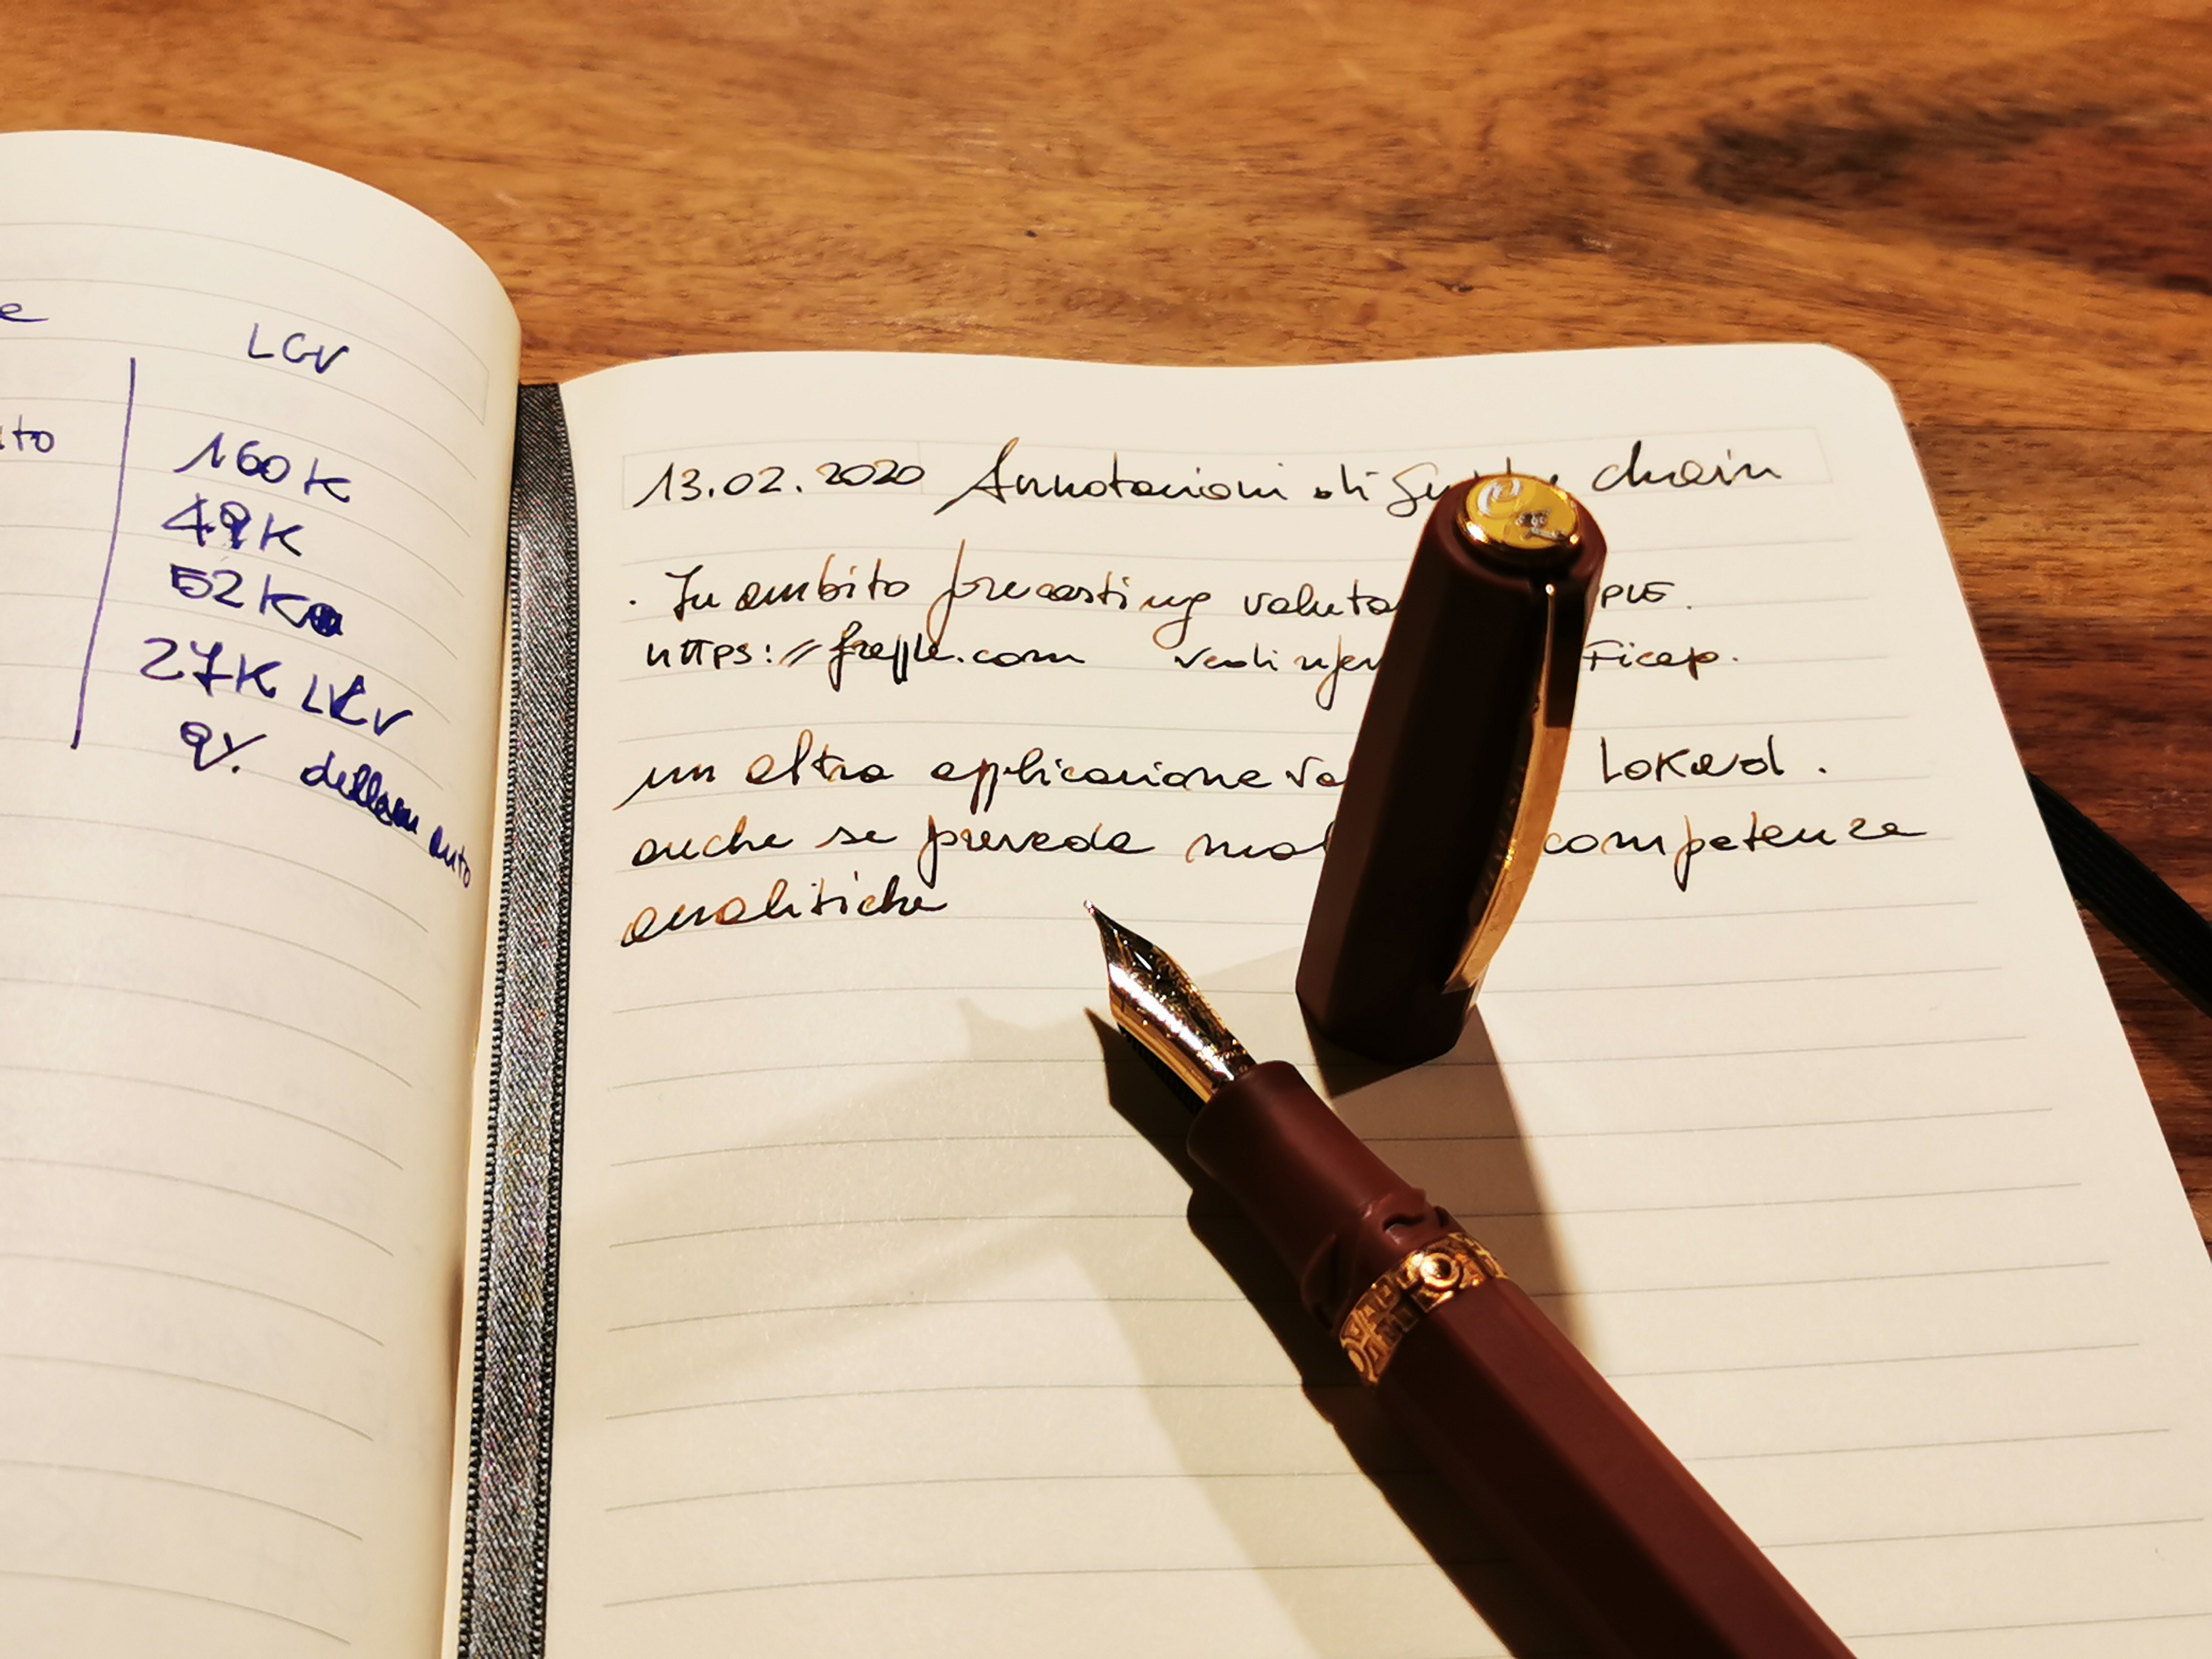 LGV
160K
49K
52K
27K LKV
dellam auto
13.02.2020 Annotazioni di chain
. In ambito forecasting
https://frepple.com vedi Ficep.
un altra applicazione Lokad.
anche se prevede competenze
analitiche